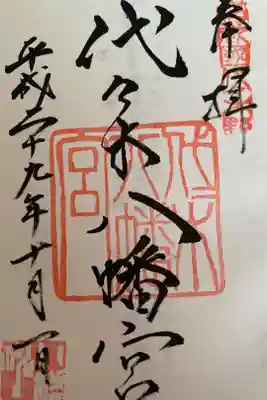 奉拝
代々木八幡宮
平成二十九年十月一日
代々木八幡宮